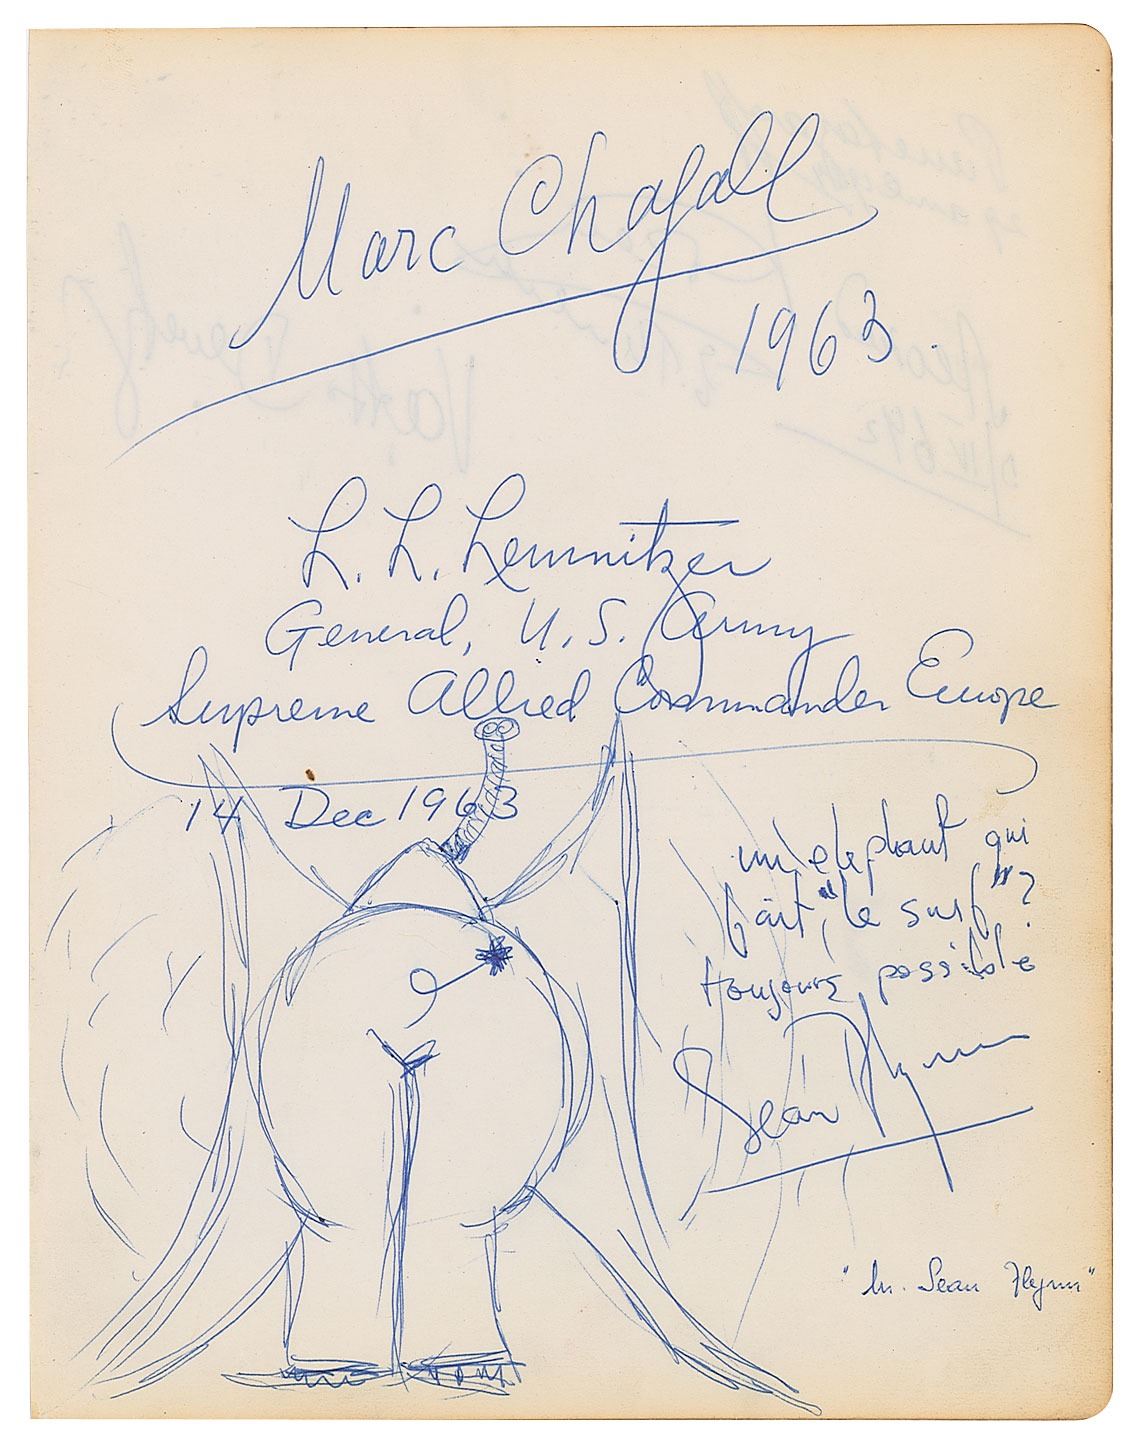 Marc Chagall
1963
L. L. Lemnitzer
General, U.S. Army
Supreme Allied Commander Europe
14 Dec 1963
un elephant qui
fait "le surf"?
toujours possible
Sean Flynn
"M. Sean Flynn"